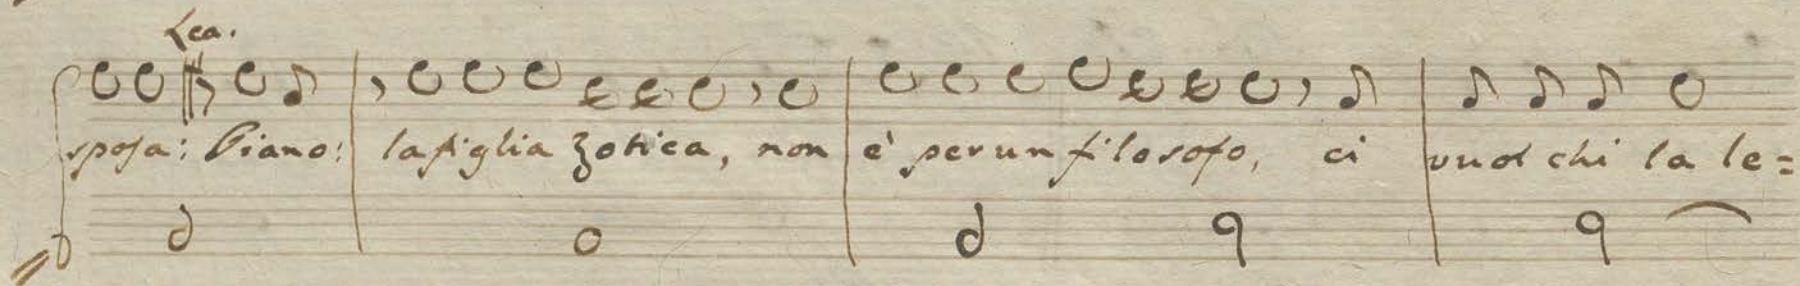 Lea.
sposa: Piano: la figlia zotica, non è per un filosofo, ci vuol chi la le=